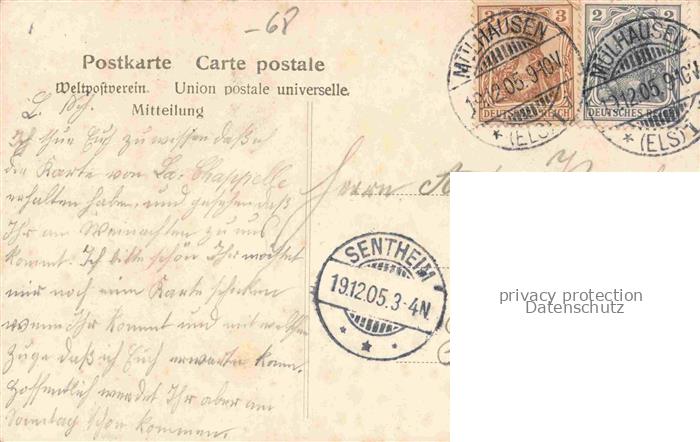 -68
Postkarte Carte postale
Weltpostverein. Union postale universelle.
Mitteilung
3
DEUTSCHES REICH
2
DEUTSCHES REICH
MÜLHAUSEN
19.12.05.9-10V.
* (ELS) 1
MÜLHAUSEN
19.12.05.9-10V.
* (ELS) 1
L. Sch.
Ich thue Euch zu wissen daß ich
die Karte von La. Chappelle
erhalten habe, und gesehen daß
Ihr an Weinachten zu uns
kommt. Ich bitte schön Ihr möchtet
mir noch eine Karte schicken
wenn Ihr kommt und mit welchem
Zuge daß ich Euch erwarten kann.
Hoffentlich werdet Ihr aber am
Sonntag schon kommen.
Herrn
SENTHEIM
19.12.05.3-4N.
privacy protection
Datenschutz